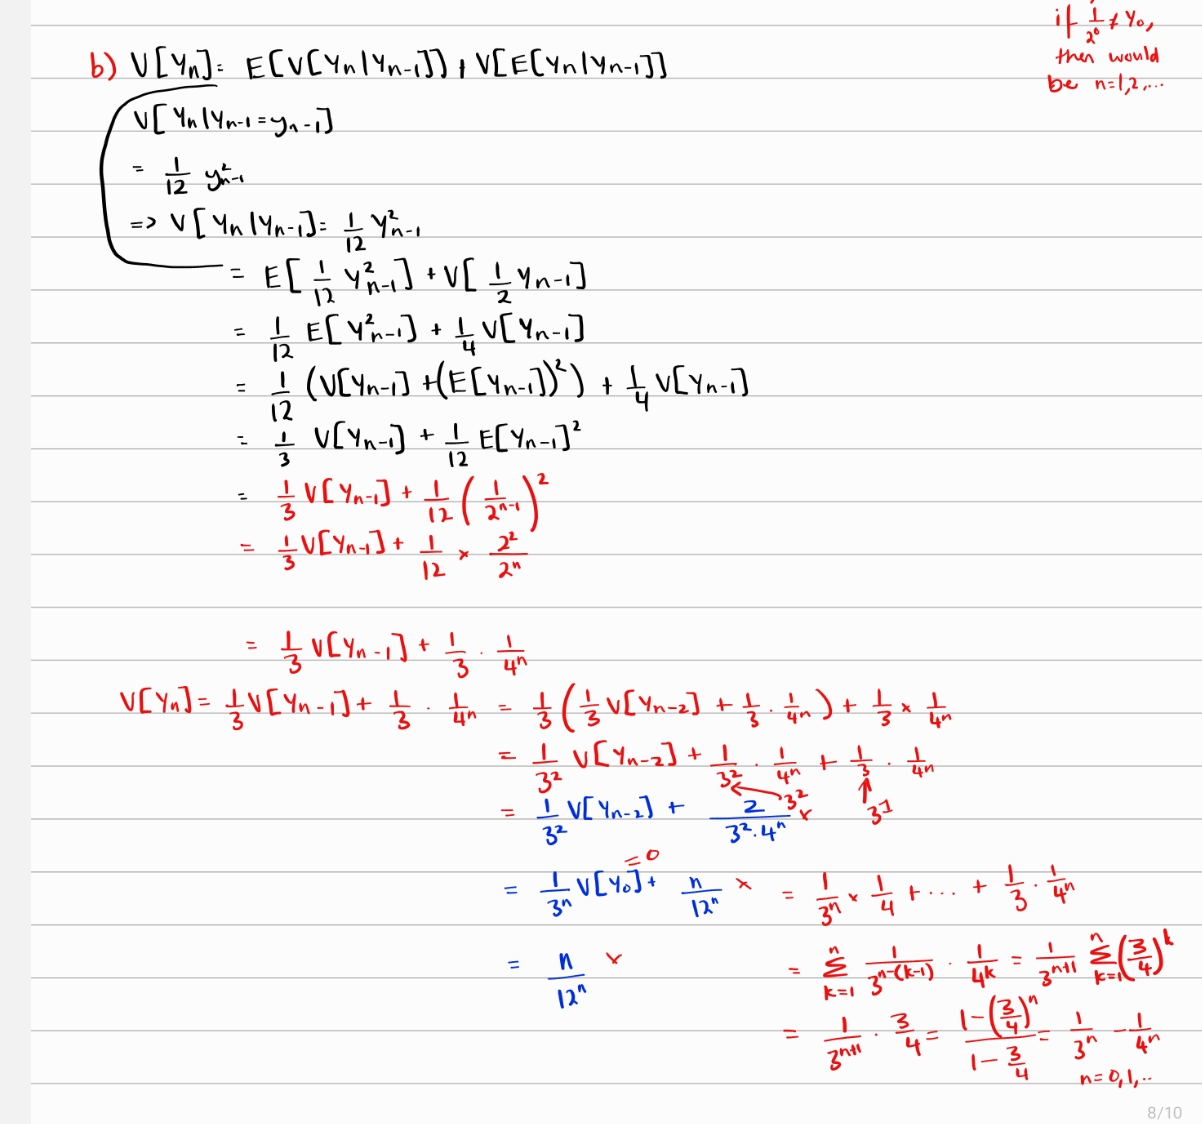 if 1/2^0 ≠ Y_0,
then would
be n=1,2,...
b) V[Y_n] = E[V[Y_n|Y_{n-1}]] + V[E[Y_n|Y_{n-1}]]
V[Y_n|Y_{n-1}=y_{n-1}]
= 1/12 y²_{n-1}
=> V[Y_n|Y_{n-1}] = 1/12 Y²_{n-1}
= E[1/12 Y²_{n-1}] + V[1/2 Y_{n-1}]
= 1/12 E[Y²_{n-1}] + 1/4 V[Y_{n-1}]
= 1/12 (V[Y_{n-1}] + (E[Y_{n-1}])²) + 1/4 V[Y_{n-1}]
= 1/3 V[Y_{n-1}] + 1/12 E[Y_{n-1}]²
= 1/3 V[Y_{n-1}] + 1/12 (1/2^{n-1})²
= 1/3 V[Y_{n-1}] + 1/12 × 2²/2^n
= 1/3 V[Y_{n-1}] + 1/3 · 1/4^n
V[Y_n] = 1/3 V[Y_{n-1}] + 1/3 · 1/4^n = 1/3 (1/3 V[Y_{n-2}] + 1/3 · 1/4^n) + 1/3 × 1/4^n
= 1/3² V[Y_{n-2}] + 1/3² · 1/4^n + 1/3 · 1/4^n
3² 3^1
= 1/3² V[Y_{n-2}] + 2/(3²·4^n) ×
= 1/3^n V[Y_0] + n/12^n ×
=0
= n/12^n ×
= 1/3^n × 1/4 + ... + 1/3 · 1/4^n
= Σ_{k=1}^n 1/3^{n-(k-1)} · 1/4^k = 1/3^{n+1} Σ_{k=1}^n (3/4)^k
= 1/3^{n+1} · 3/4 = (1-(3/4)^n)/(1-3/4) = 1/3^n - 1/4^n
n=0,1,..
8/10